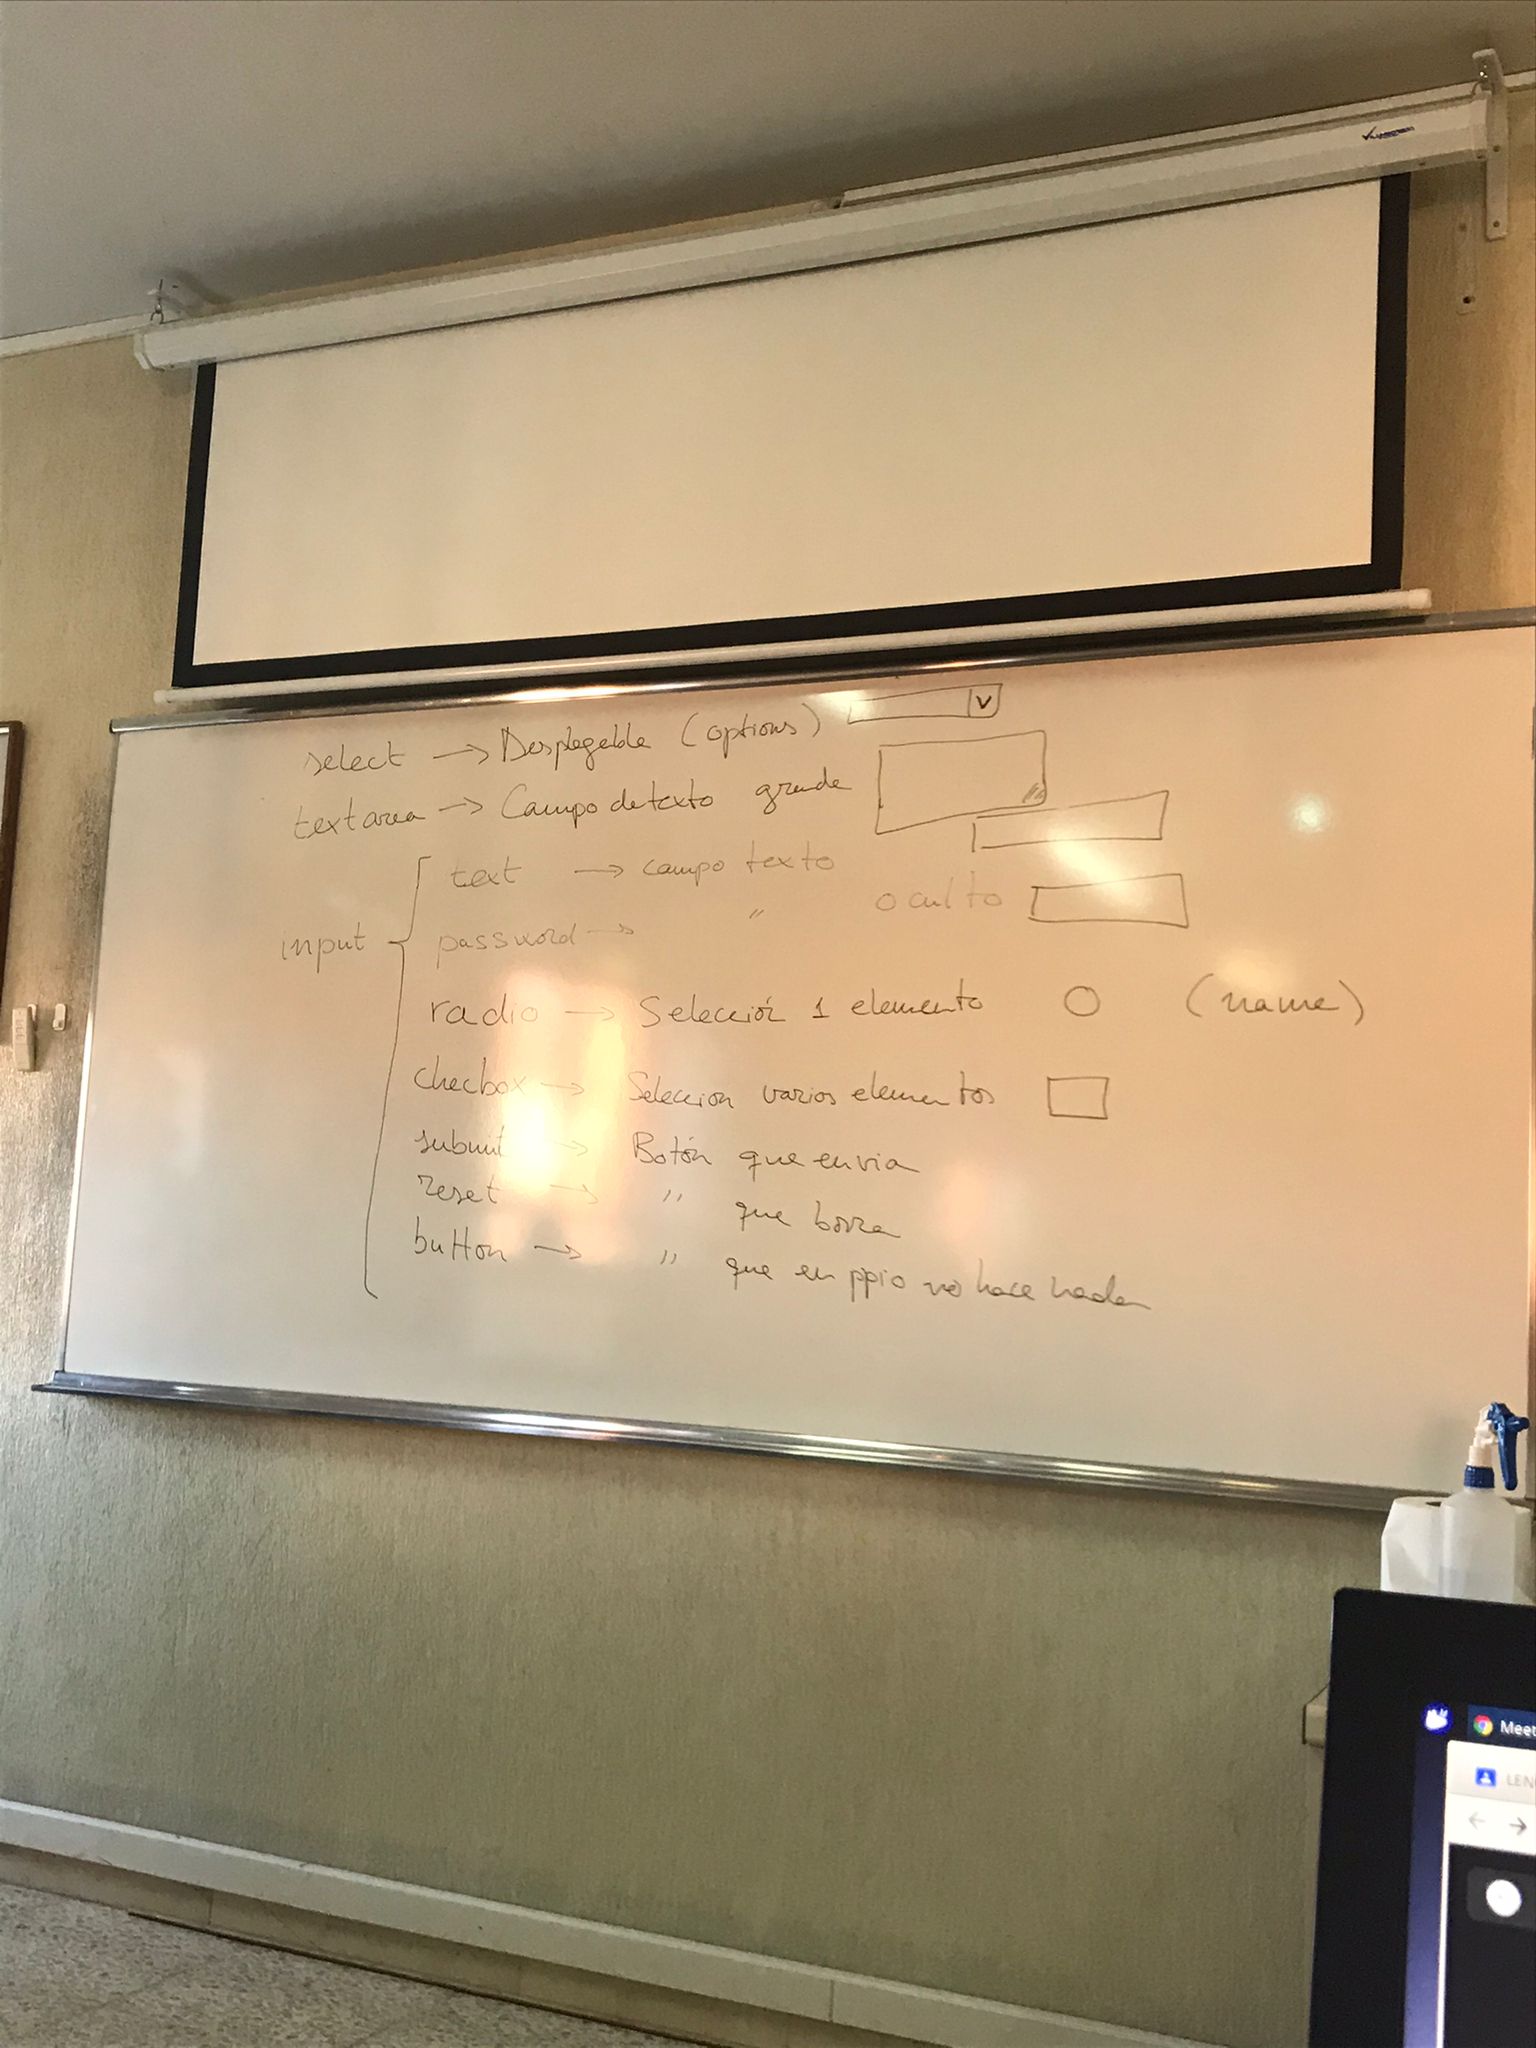 select → Desplegable (options) v
textarea → Campo de texto grande
input
text → campo texto
password → " oculto
radio → Selección 1 elemento (name)
checbox → Seleccion varios elementos
submit → Botón que envia
reset → " que borra
button → " que en ppio no hace nada
Meet
LEN